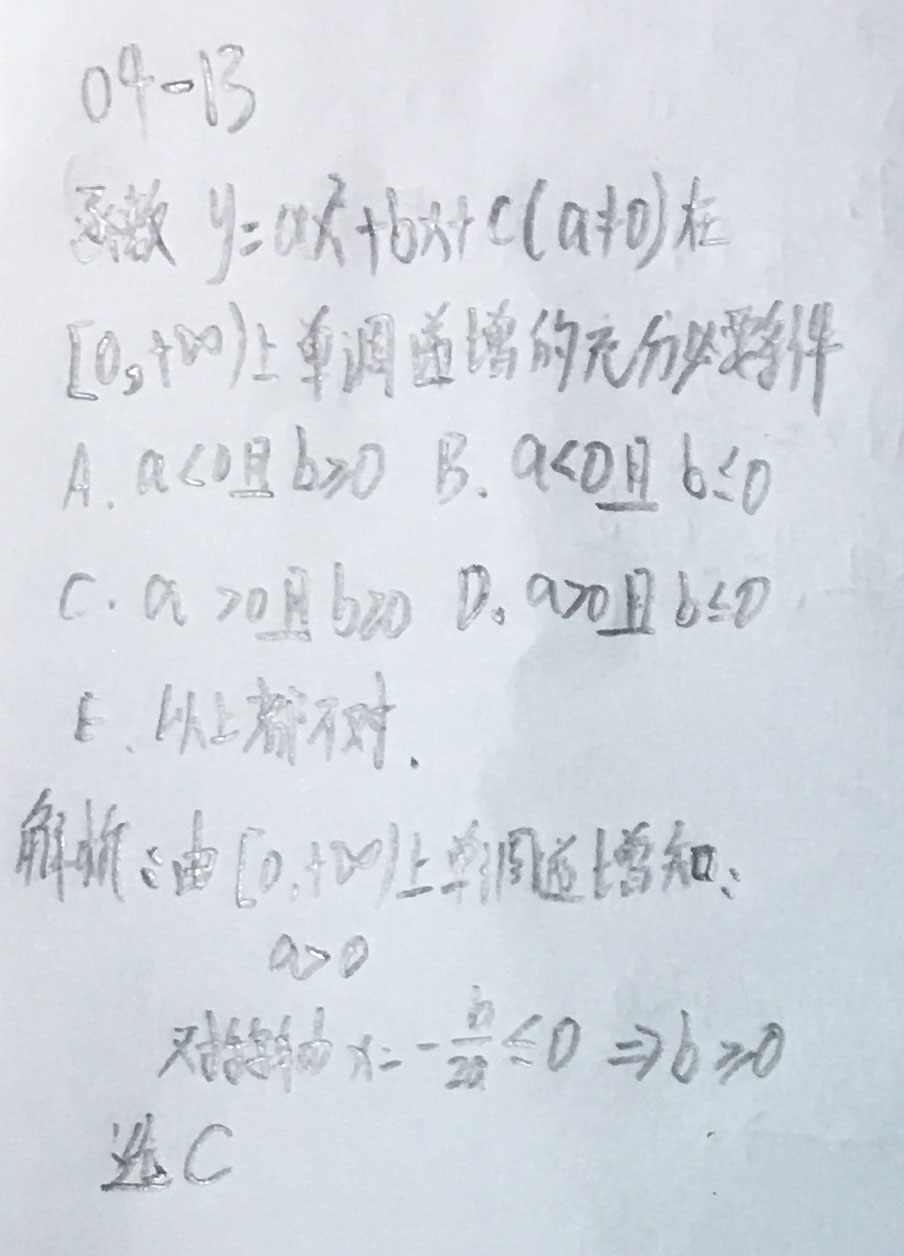 04-13
函数 y=ax²+bx+c(a≠0)在
[0,+∞)上单调递增的充分必要条件
A. a<0且 b≥0 B. a<0且 b≤0
C. a>0且 b≥0 D. a>0且 b≤0
E. 以上都不对.
解析:由[0,+∞)上单调递增知:
a>0
对称轴 x=-b/2a≤0 ⇒b≥0
选C